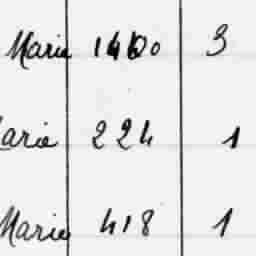 Marie 3
arie 224 1
Marie 418 1